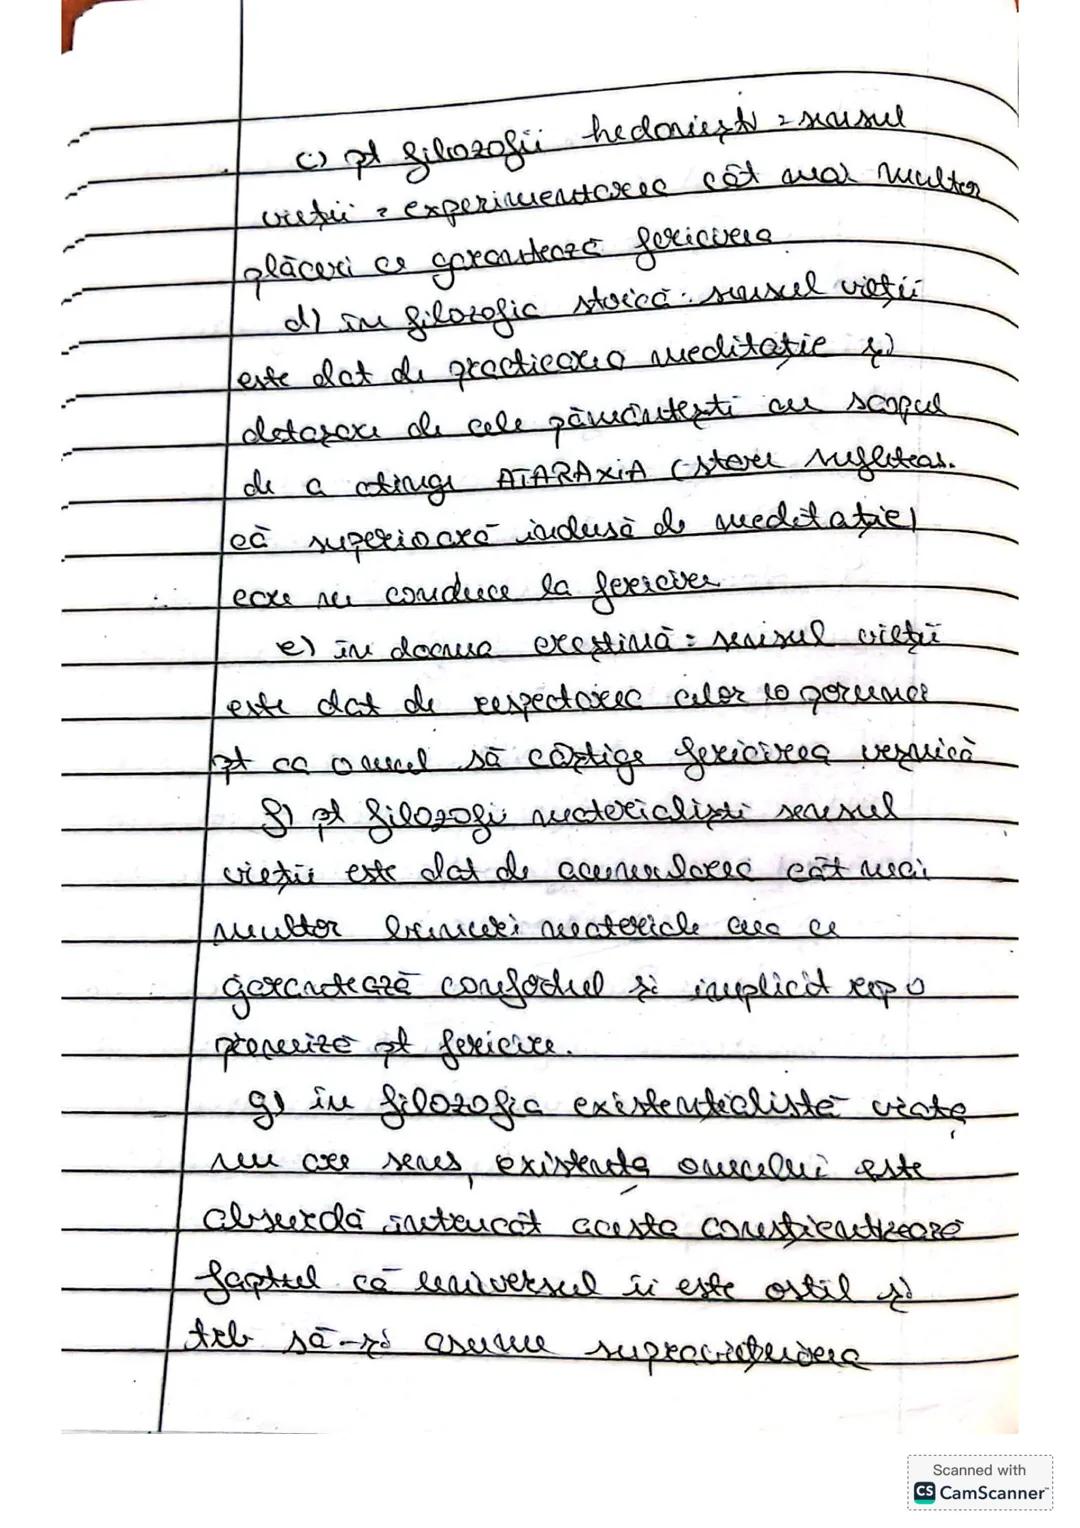 c) pt filozofii hedoniești = sensul
vieții = experimentarea cât mai multor
plăceri ce garantează fericirea
d) în filozofia stoică: sensul vieții
este dat de practicarea meditație și
detașare de cele pământești cu scopul
de a atinge ATARAXIA (stare sufleteas-
că superioară indusă de meditație)
care ne conduce la fericire
e) în docma creștină = sensul vieții
este dat de respectarea celor 10 porunci
pt ca omul să câștige fericirea veșnică
f) pt filozofi materialiști sensul
vieții este dat de acumularea cât mai
multor bunuri materiale cea ce
garantează confortul și implicit rep o
premiză pt fericire.
g) în filozofia existențialistă viața
nu are sens, existența omului este
absurdă întrucât acesta conștientizează
faptul că universul îi este ostil și
treb să-și asume supraviețuirea
Scanned with
CS CamScanner